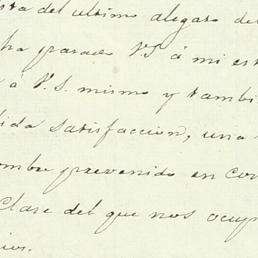 sta del ultimo alegato de
ha parase VS á mi es
a á V.S. mismo y tambi
lida satisfaccion, una
ombre prevenido en Con
Clase del que nos ocup
ios.